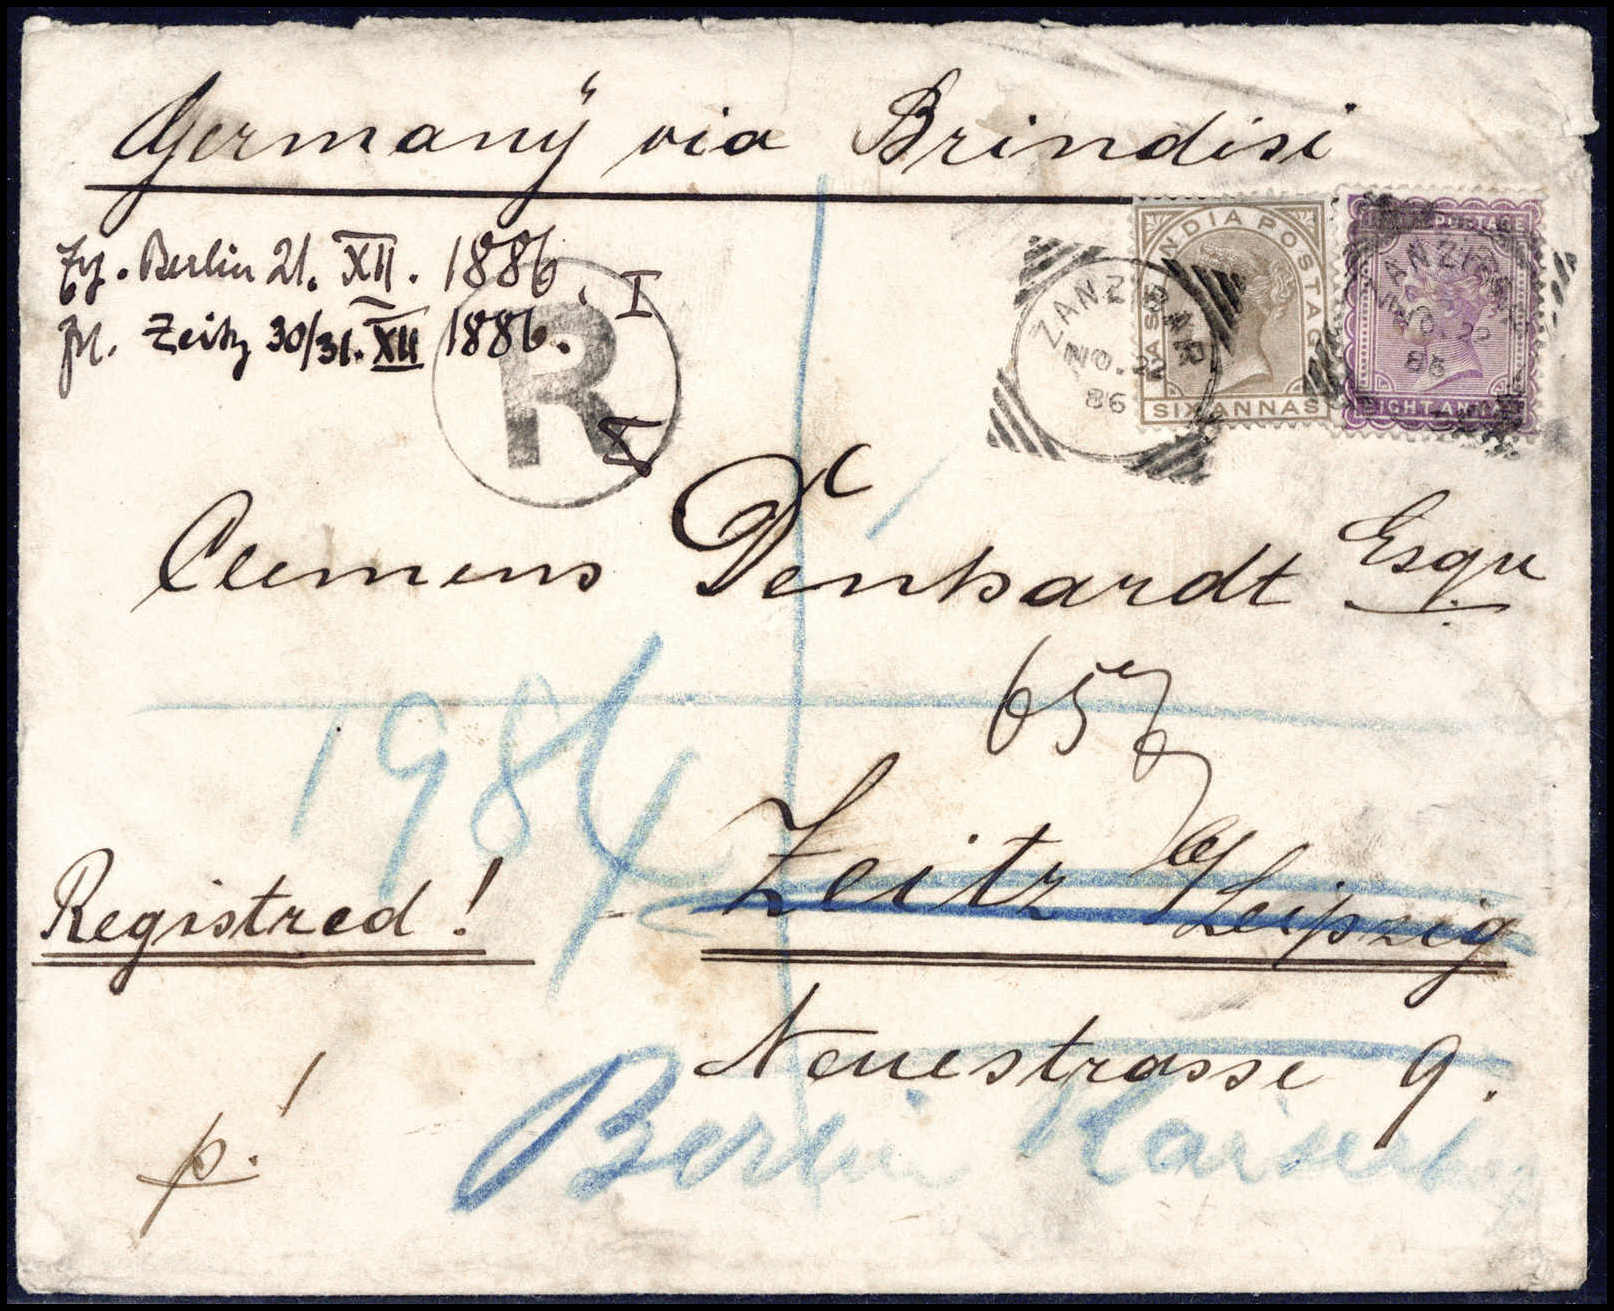 Germany via Brindisi
Berlin 21. XII. 1886. I
Zeitz 30/31. XII 1886.
R
INDIA POSTAGE
SIX ANNAS
POSTAGE
EIGHT ANNAS
ZANZIBAR
NO. 2
86
ZANZIBAR
NO. 2
86
Clemens Denhardt Esqu
657
1984
Zeitz b/Leipzig
Registred!
Neuestrasse 9.
Berlin
p.!